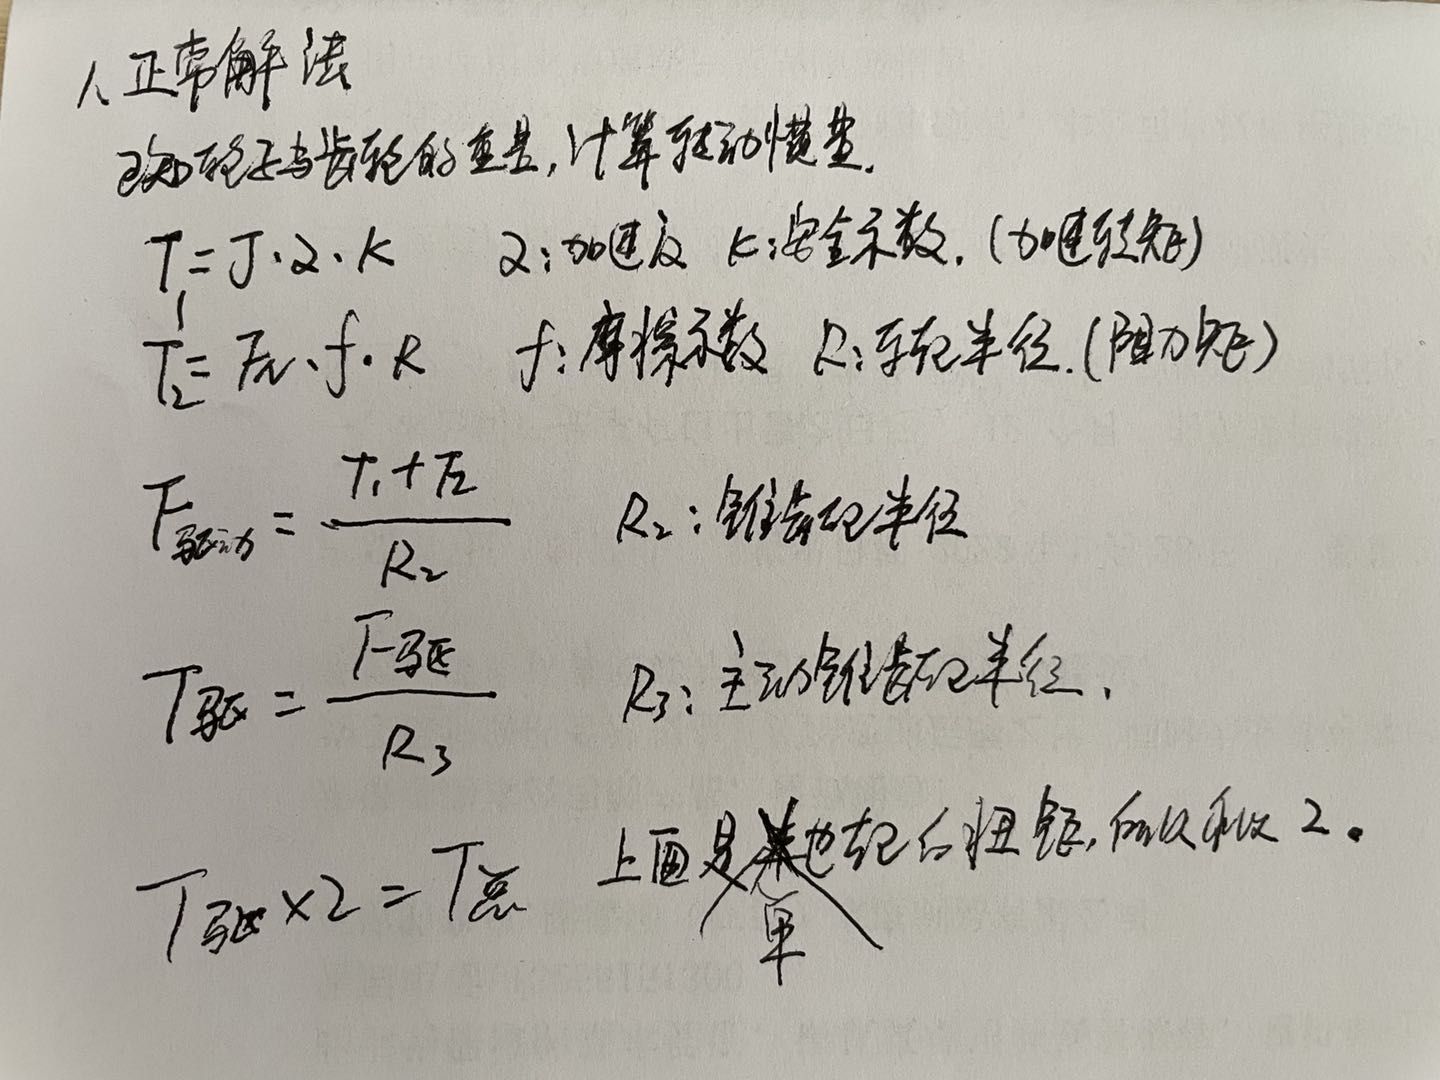 1、正常解法
已知轮子与齿轮的重量,计算转动惯量.
T₁=J·α·K α:加速度 K:安全系数.(加速转矩)
T₂=FN·f·R f:摩擦系数 R:车轮半径.(阻力矩)
F驱动=(T₁+T₂)/R₂ R₂:锥齿轮半径
T驱=F驱/R₃ R₃:主动锥齿轮半径.
T驱×2=T总 上面是单边轮的扭矩,所以乘以2。